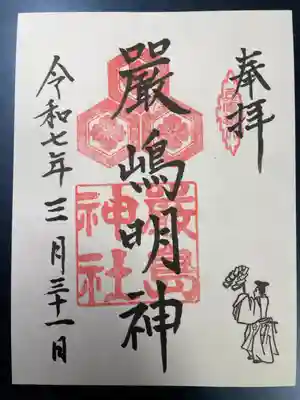 奉拝
嚴嶋明神
厳島
神社
令和七年三月三十一日